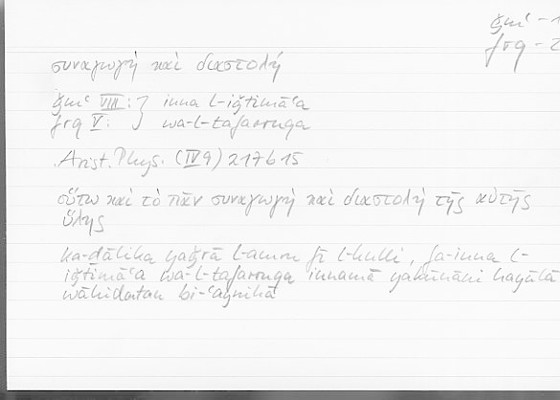 ǧmʿ - 1
frq - 2
συναγωγή καὶ διαστολή
ǧmʿ VIII: } inna l-iǧtimāʿa
frq V: } wa-l-tafarruqa
Arist. Phys. (IV 9) 217b15
οὕτω καὶ τὸ πᾶν συναγωγή καὶ διαστολή τῆς αὐτῆς
ὕλης
ka-ḏālika yaǧrā l-amru fī l-kulli, fa-inna l-
iǧtimāʿa wa-l-tafarruqa innamā yakūnāni hayūlā
wāḥidatan bi-ʿaynihā